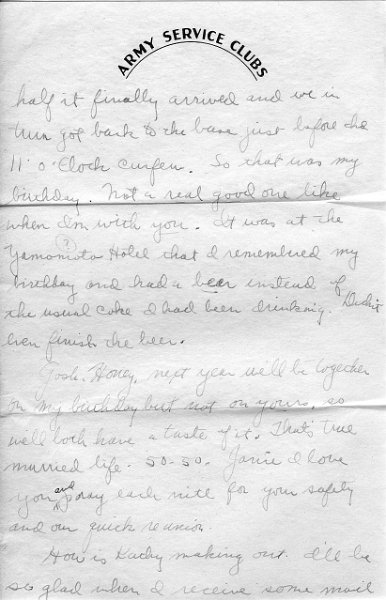 ARMY SERVICE CLUBS
half it finally arrived and we in
turn got back to the base just before the
11 o'Clock curfew. So that was my
birthday. Not a real good one like
when I'm with you. It was at the
Yamomoto (?) Hotel that I remembered my
birthday and had a beer instead of
the usual coke I had been drinking. Didn't
even finish the beer.
Gosh Honey, next year we'll be together
on my birthday but not on yours, so
we'll both have a taste of it. That's true
married life - 50-50. Janie I love
you and pray each nite for your safety
and our quick reunion.
How is making out. I'll be
so glad when I receive some mail